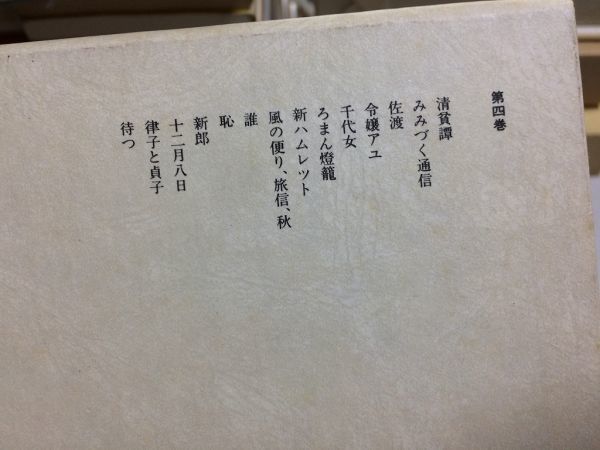 第四巻
清貧譚
みみづく通信
佐渡
令嬢アユ
千代女
ろまん燈籠
新ハムレット
風の便り、旅信、秋
誰
恥
新郎
十二月八日
律子と貞子
待つ